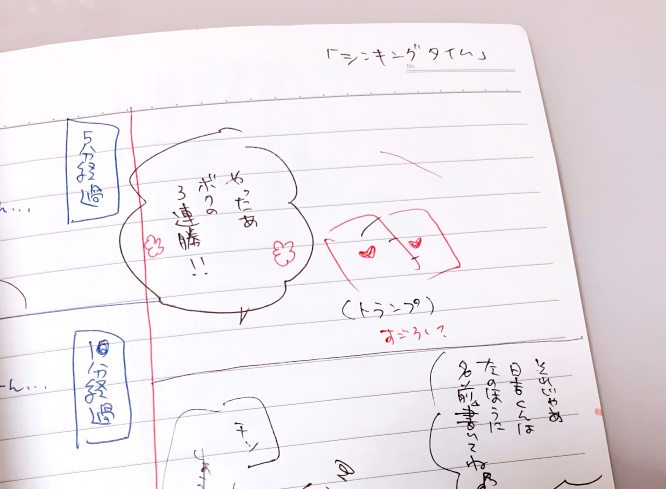 「シンキングタイム」
やったあ
ボクの
3連勝!!
5分経過
ん…
(トランプ)
すごろく?
それじゃあ
日吉くんは
左のほうに
名前書いてねぇ
チッ
10分経過
ん…